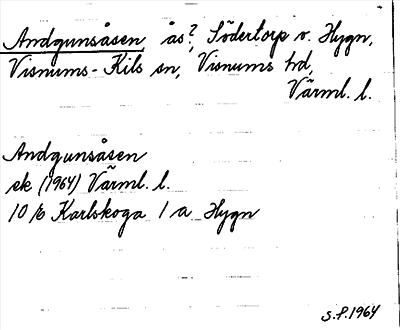 Andgunsåsen, ås?, Södertorp o. Hygn,
Visnums-Kils sn, Visnums hd,
Värml. l.
Andgunsåsen
ek (1964) Värml. l.
10 16 Karlskoga 1 a Hygn
S.P. 1964